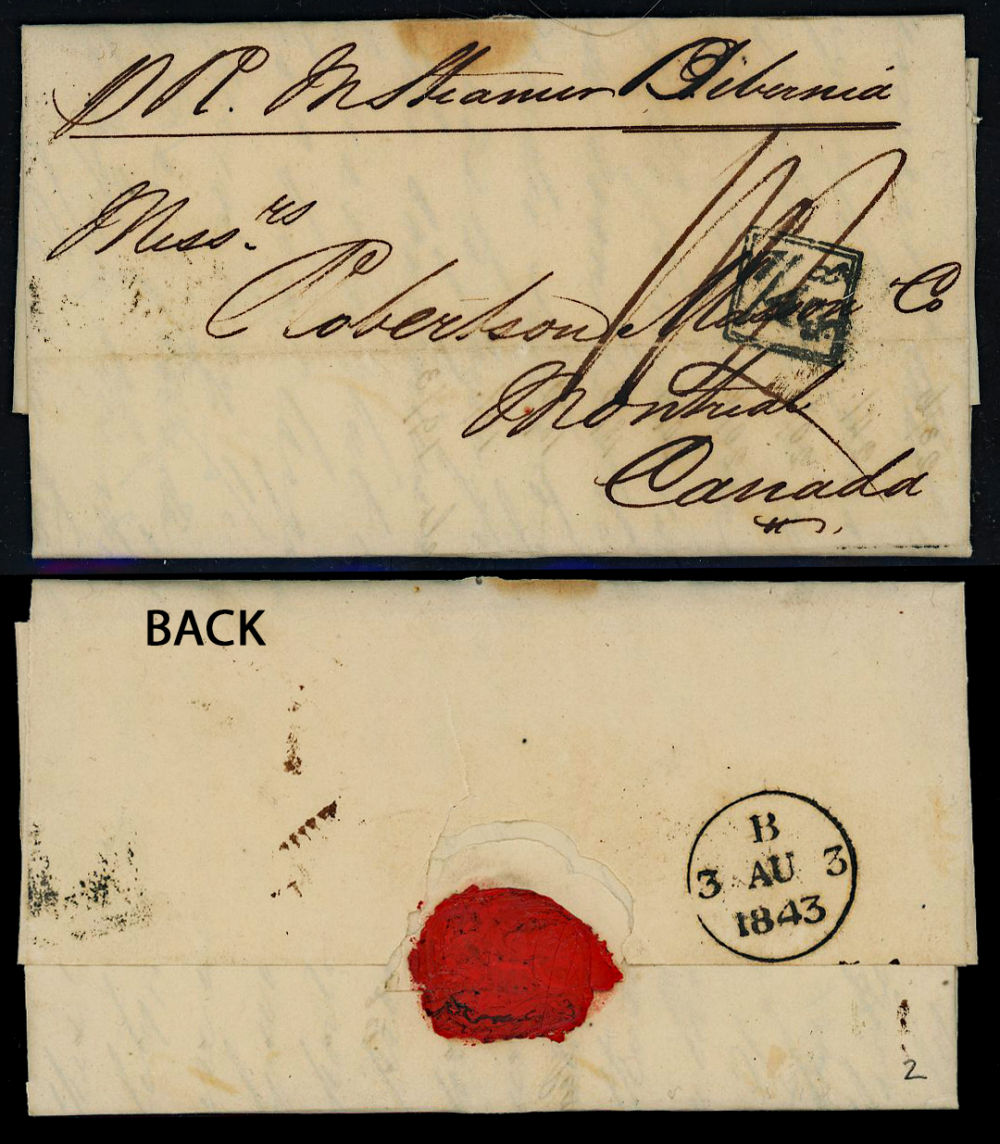 P R. M Steamer Hibernia
Messrs
Robertson Masson & Co
Montreal
Canada
BACK
B
3 AU 3
1843
2